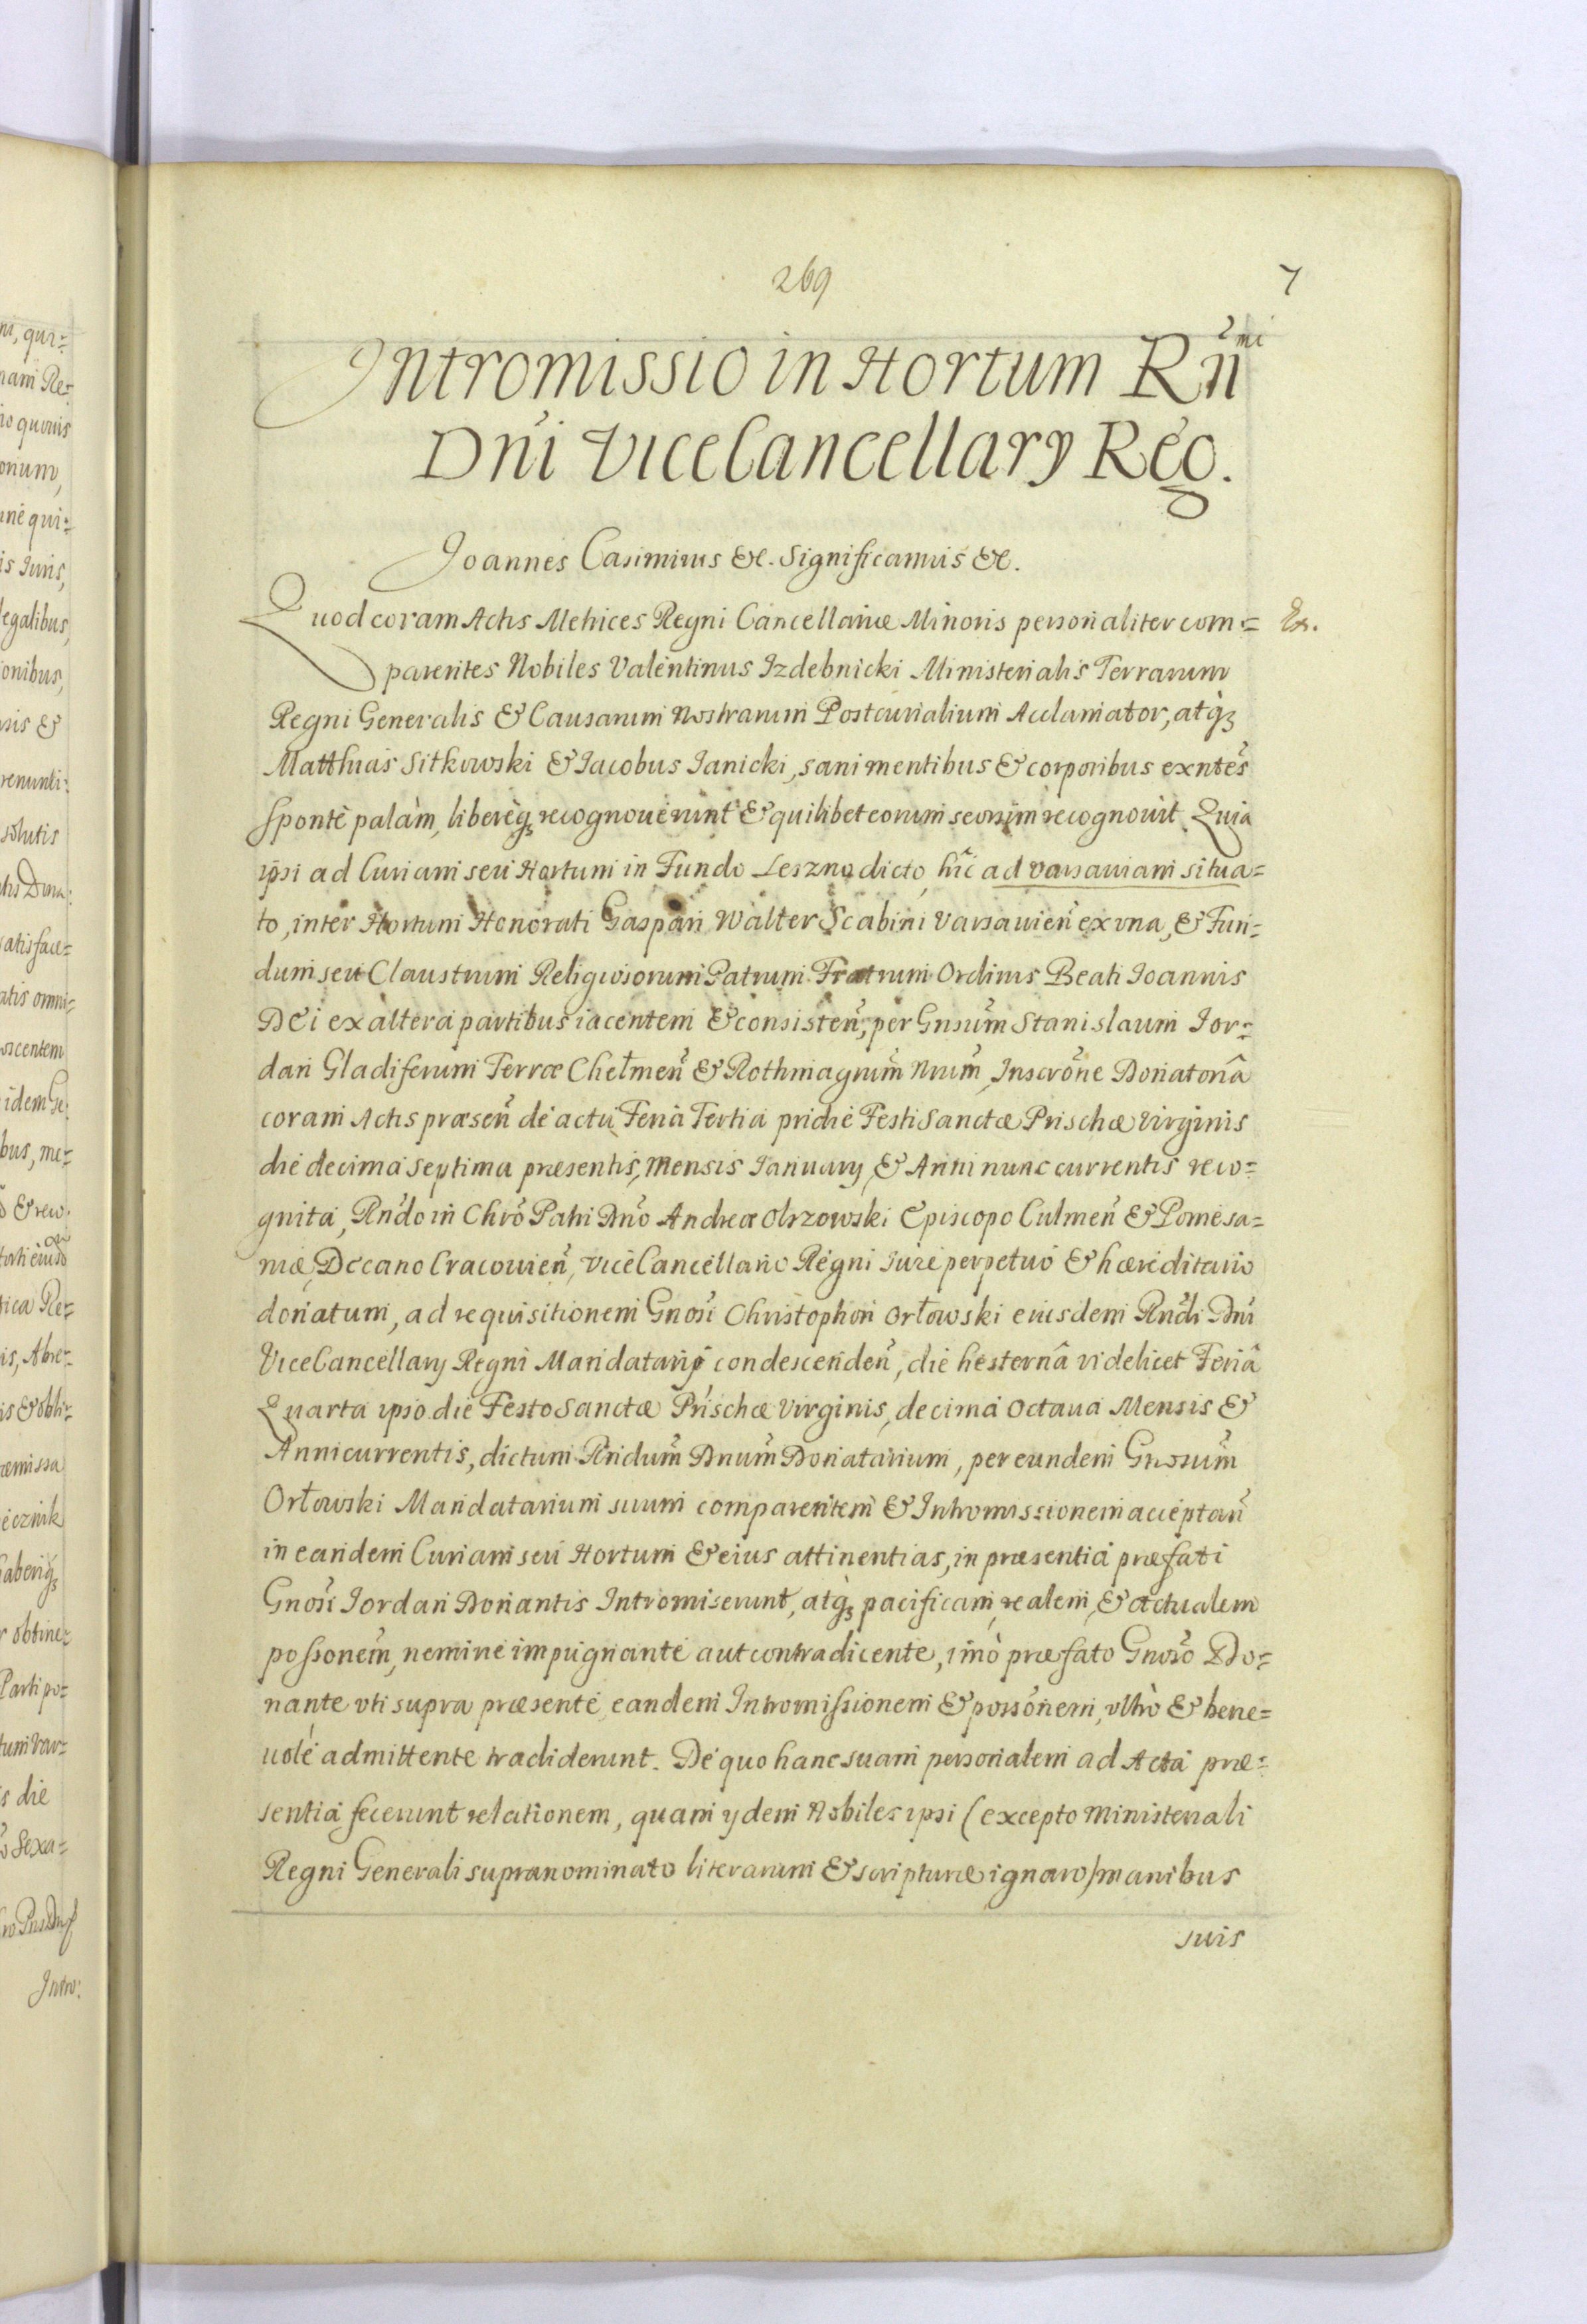 269
7
Intromissio in Hortum Rñ mi
Dñi ViceCancellary Reg.
Joannes Casimirus &c. Significamus &c.
Quod coram Actis Metrices Regni Cancellariæ Minoris personaliter com= Ex.
parentes Nobiles Valentinus Izdebnicki Ministerialis Terrarum
Regni Generalis & Causarum Nostrarum Postcurialium Acclamator, atqꝫ
Matthias Sitkowski & Iacobus Ianicki, sani mentibus & corporibus exñtes
sponte palàm, liberèqꝫ recognouerunt & quilibet eorum seorsim recognouit. Quia
ipsi ad Curiam seu Hortum in Fundo Leszno dicto, hic ad Varsauiam situa=
to, inter Hortum Honorati Gaspari Walter Scabini Varsauieñ ex vna, & Fun=
dum seu Claustrum Religiosorum Patrum Fratrum Ordinis Beati Ioannis
Dei ex altera partibus iacentem & consisteñ, per Gnsum̃ Stanislaum Ior=
dan Gladiferum Terræ Chełmeñ & Rothmagrum̃ Nrum̃, Inscrõne Donatoriâ
coram Actis præseñ de actu Feria Tertia pridie Festi Sanctæ Priscæ Virginis
die decima septima præsentis, Mensis January, & Anni nunc currentis reco=
gnita, Rñdo in Chrõ Patri Dño Andreæ Olszowski Episcopo Culmeñ & Pomesa=
niæ, Decano Cracouieñ, ViceCancellario Regni Iure perpetuo & hæreditario
donatum, ad requisitionem Gnosi Christophori Orłowski eiusdem Rñdi Dñi
ViceCancellary Regni Mandatarij condescendeñ, die hesternâ videlicet Feriâ
Quarta ipso die Festo Sanctæ Prischæ Virginis, decima Octaua Mensis &
Anni currentis, dictum Rñdum̃ Dnum̃ Donatarium, per eundem Gnosum̃
Orłowski Mandatarium suum comparentem & Intromissionem acceptañ
in eandem Curiam seu Hortum & eius attinentias, in præsentia præfati
Gnosi Iordan Donantis Intromiserunt, atqꝫ pacificam, realem, & actualem
possonem̃, nemine impugnante aut contradicente, imò præfato Gnoso Do=
nante vti supra præsente, eandem Intromissionem & possonem, vltrò & bene=
uolè admittente tradiderunt. De quo hanc suam personalem ad Acta præ=
sentia fecerunt relationem, quam ydem Nobiles ipsi (excepto Ministeriali
Regni Generali supranominato literarum & scripturæ ignaro) manibus
suis